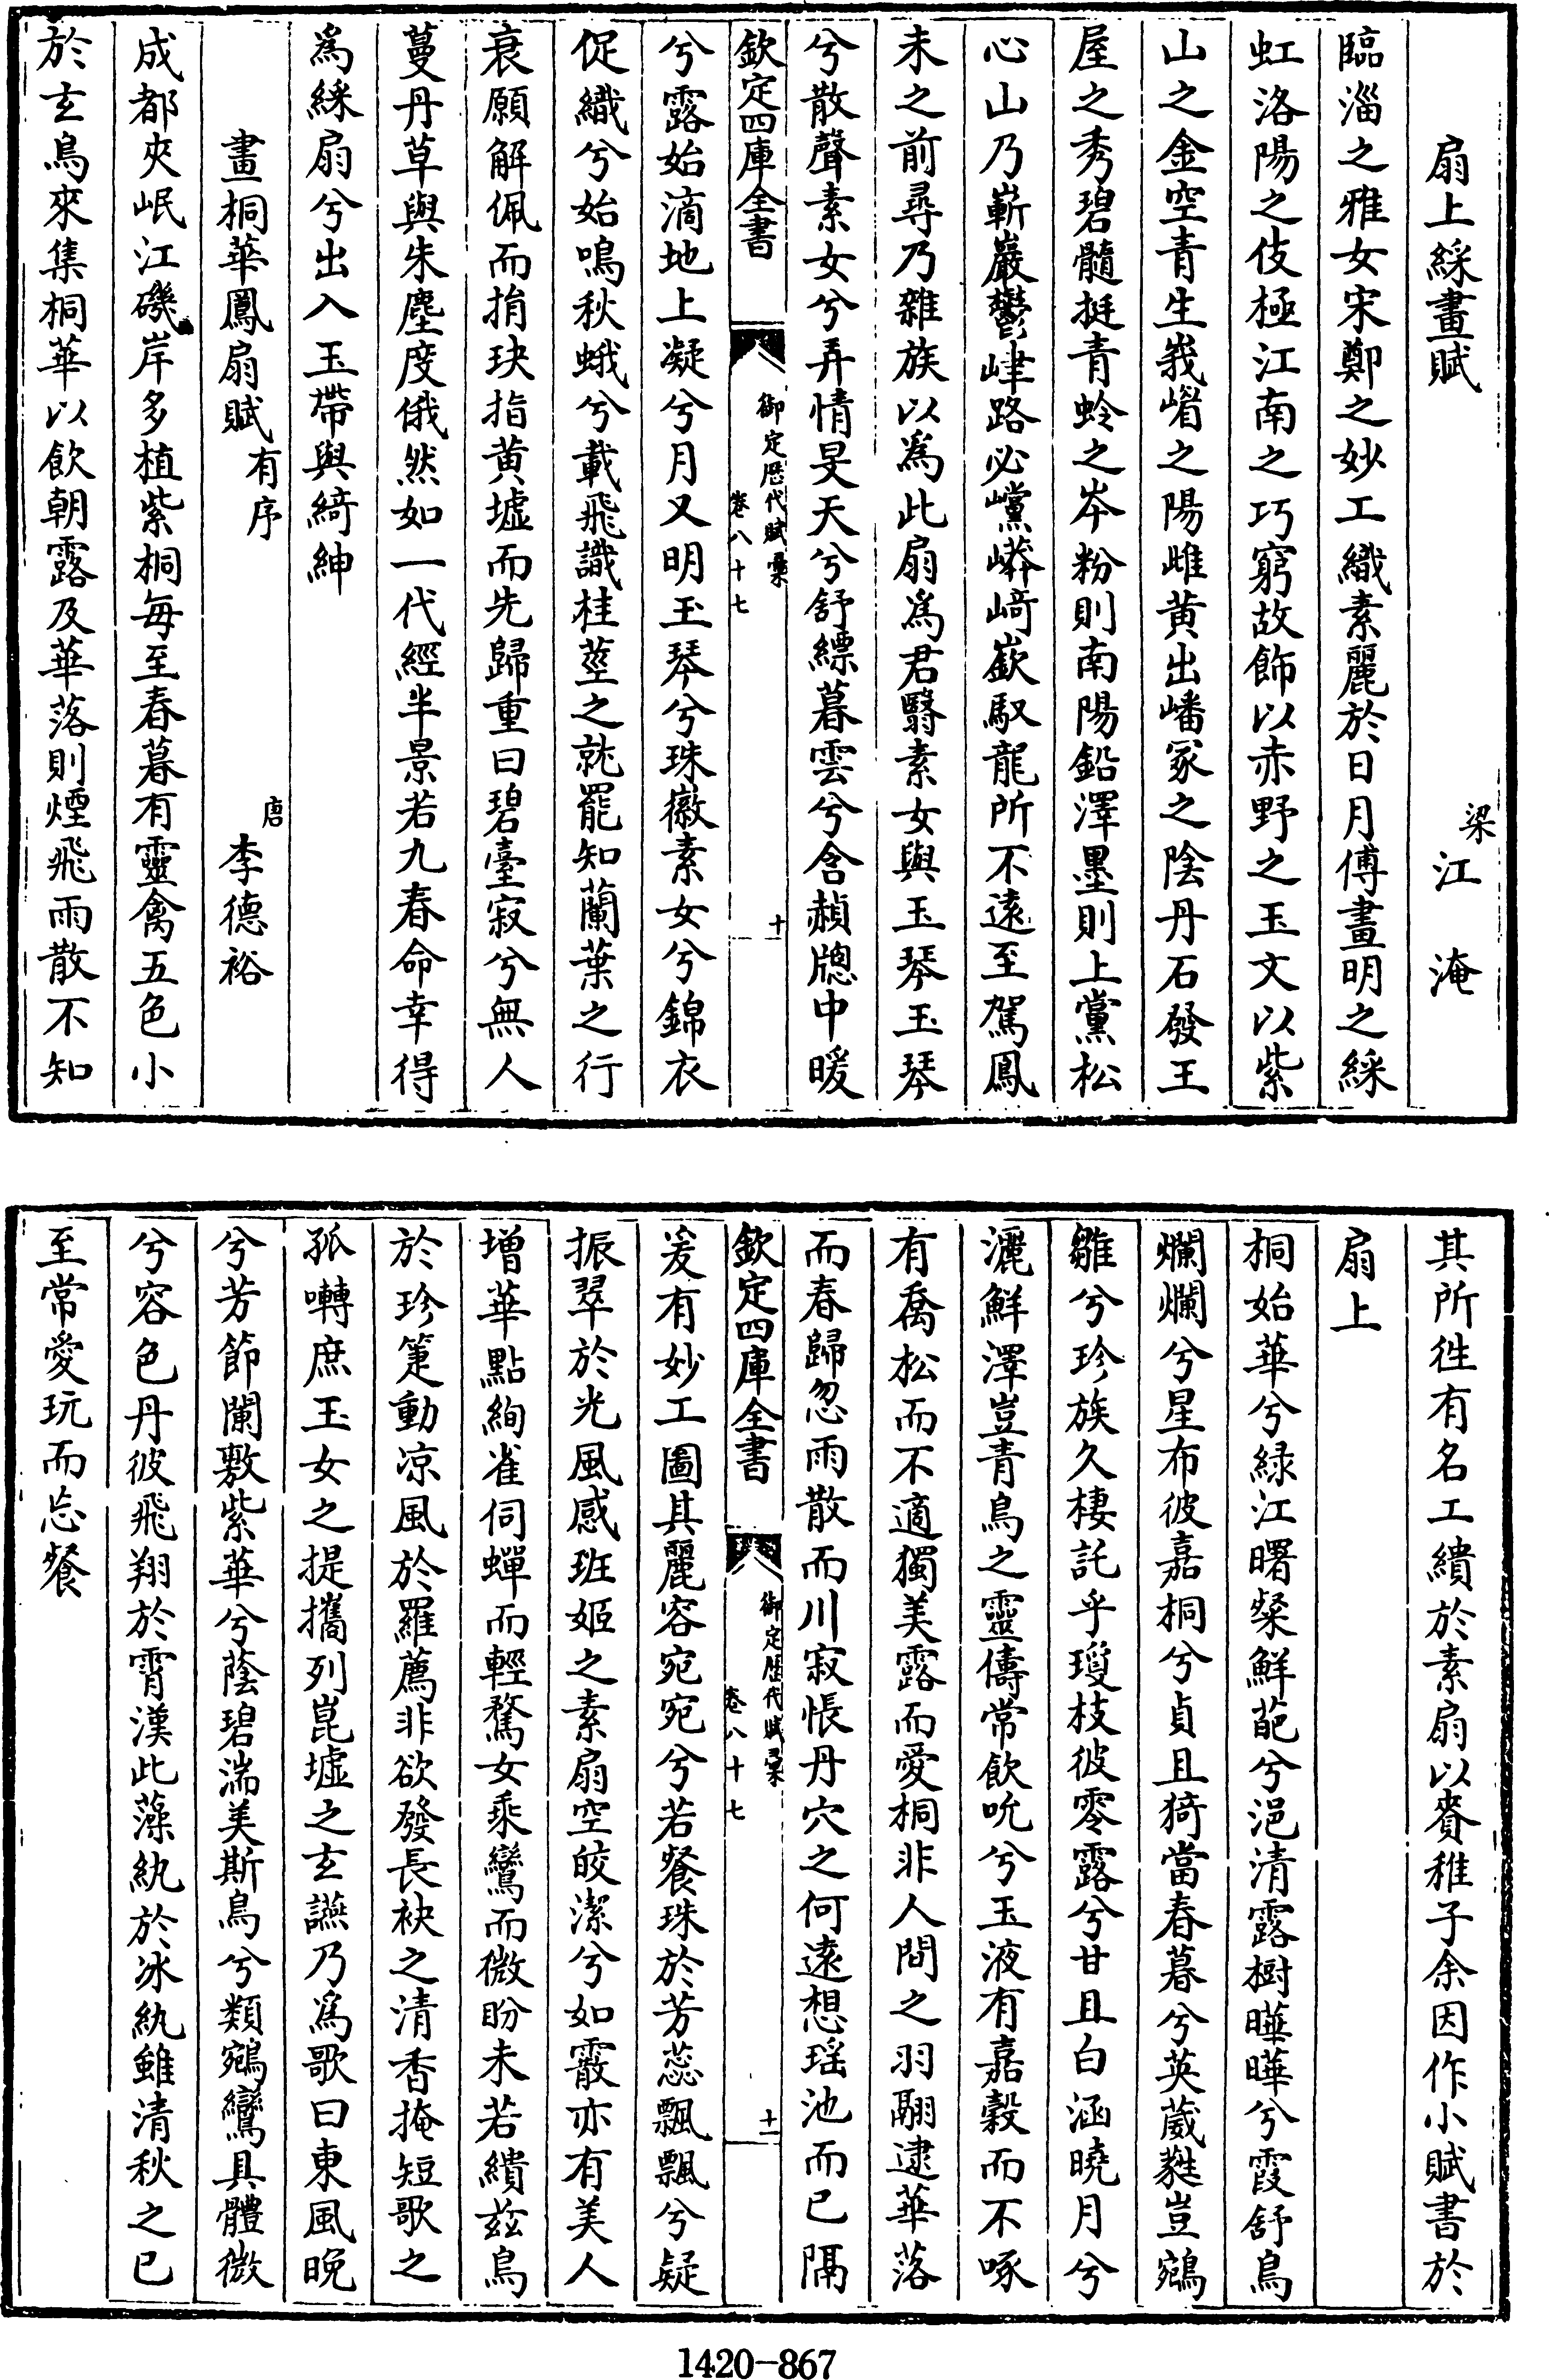 扇上綵畫賦　梁江淹
臨淄之雅女宋鄭之妙工織素麗於日月傅畫明之綵
虹洛陽之伎極江南之巧窮故飾以赤野之玉文以紫
山之金空青生峩嵋之陽雌黄出嶓冢之陰丹石發王
屋之秀碧髓挺青蛉之岑粉則南陽鉛澤墨則上黨松
心山乃嶄巖鬱峍路必巏嵣崎嶔馭龍所不遠至駕鳳
未之前尋乃雜族以爲此扇爲君翳素女與玉琴玉琴
兮散聲素女兮弄情旻天兮舒縹暮雲兮含赬牕中暖
欽定四庫全書　御定歷代賦彙　卷八十七　十
兮露始滴地上凝兮月又明玉琴兮珠徽素女兮錦衣
促織兮始鳴秋蛾兮載飛識桂莖之就罷知蘭葉之行
衰願解佩而捐玦指黄墟而先歸重曰碧臺寂兮無人
蔓丹草與朱塵度俄然如一代經半景若九春命幸得
爲綵扇兮出入玉帶與綺紳
畫桐華鳳扇賦有序　唐李德裕
成都夾岷江磯岸多植紫桐每至春暮有靈禽五色小
於玄鳥來集桐華以飲朝露及華落則煙飛雨散不知
其所徃有名工繢於素扇以賚稚子余因作小賦書於
扇上
桐始華兮綠江曙粲鮮葩兮浥清露樹曄曄兮霞舒鳥
爛爛兮星布彼嘉桐兮貞且猗當春暮兮英葳蕤豈鵷
雛兮珍族久棲託乎瓊枝彼零露兮甘且白涵曉月兮
灑鮮澤豈青鳥之靈儔常飲吮兮玉液有嘉穀而不啄
有喬松而不適獨美露而愛桐非人間之羽翮逮華落
而春歸忽雨散而川寂悵丹穴之何遠想瑤池而已隔
欽定四庫全書　御定歷代賦彙　卷八十七　十一
爰有妙工圖其麗容宛宛兮若餐珠於芳蕊飄飄兮疑
振翠於光風感班姬之素扇空皎潔兮如霰亦有美人
增華點絢雀伺蟬而輕鶩女乘鸞而微盼未若繢兹鳥
於珍箑動凉風於羅薦非欲發長袂之清香掩短歌之
孤囀庶玉女之提攜列崑墟之玄讌乃爲歌曰東風晚
兮芳節闌敷紫華兮蔭碧湍美斯鳥兮類鵷鸞具體微
兮容色丹彼飛翔於霄漢此藻紈於冰紈雖清秋之已
至常愛玩而忘餐
1420-867